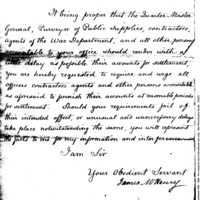 It being proper that the Quarter Master
General, Purveyor of Public Supplies, contractors,
Agents of the War Department, and all other persons
accountable to your office should render with as
little delay as possible their accounts for settlement.
You are hereby requested to require and urge all
officers contractors agents and other persons accountable
as aforesaid to furnish their accounts at reasonable periods
for settlement. Should your requirements fail of
their intended effect, or unusual and unnecessary delays
take place notwithstanding the same, you will represent
the facts to me for my information and interference
I am Sir
Your Obedient Servant
James McHenry